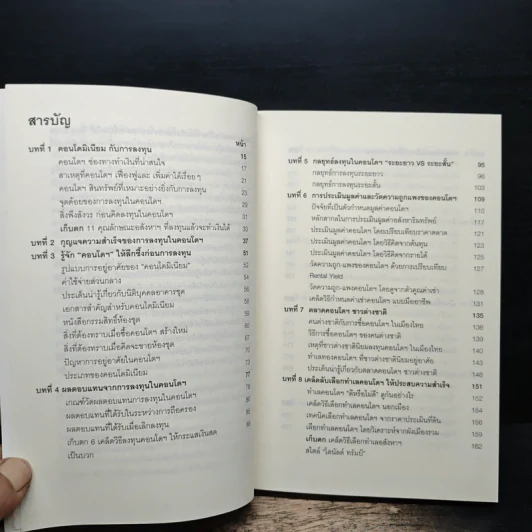 สารบัญ
หน้า
บทที่ 1 คอนโดมิเนียม กับการลงทุน 15
คอนโดฯ ช่องทางทำเงินที่น่าสนใจ 17
สาเหตุที่คอนโดฯ เฟื่องฟูและ เพิ่มค่าได้เรื่อยๆ 21
คอนโดฯ สินทรัพย์ที่เหมาะอย่างยิ่งกับการลงทุน 25
จุดด้อยของการลงทุนในคอนโดฯ 27
สิ่งพึงสังวร ก่อนคิดลงทุนในคอนโดฯ 31
เก็บตก 11 คุณลักษณะอสังหาฯ ที่ลงทุนแล้วจะทำเงินได้ 33
บทที่ 2 กุญแจความสำเร็จของการลงทุนในคอนโดฯ 37
บทที่ 3 รู้จัก "คอนโดฯ" ให้ลึกซึ้งก่อนการลงทุน
รูปแบบการอยู่อาศัยของ "คอนโดมิเนียม"
ค่าใช้จ่ายส่วนกลาง
ประเด็นน่ารู้เกี่ยวกับนิติบุคคลอาคารชุด
เอกสารสำคัญสำหรับคอนโดมิเนียม
หนังสือกรรมสิทธิ์ห้องชุด
สิ่งที่ต้องทราบเมื่อซื้อคอนโดฯ สร้างใหม่
สิ่งที่ต้องทราบเมื่อคิดจะขายห้องชุด
ปัญหาการอยู่อาศัยในคอนโดฯ
ประเภทของคอนโดมิเนียม
บทที่ 4 ผลตอบแทนจากการลงทุนในคอนโดฯ 77
เกณฑ์วัดผลตอบแทนการลงทุนในคอนโดฯ
ผลตอบแทนที่ได้รับในระหว่างการถือครอง
ผลตอบแทนที่ได้รับเมื่อเลิกลงทุน
เก็บตก 6 เคล็ดวิธีลงทุนคอนโดฯ ให้กระแสเงินสด
เป็นบวก
บทที่ 5 กลยุทธ์ลงทุนในคอนโดฯ "ระยะยาว VS ระยะสั้น" 95
กลยุทธ์การลงทุนระยะยาว
กลยุทธ์การลงทุนระยะสั้น 103
บทที่ 6 การประเมินมูลค่าและวัดความถูกแพงของคอนโดฯ 109
ปัจจัยที่เป็นตัวกำหนดมูลค่าคอนโดฯ
หลักสากลในการประเมินมูลค่าอสังหาริมทรัพย์
ประเมินมูลค่าคอนโดฯ โดยเปรียบเทียบราคาตลาด
ประเมินมูลค่าคอนโดฯ โดยวิธีคิดจากต้นทุน
ประเมินมูลค่าคอนโดฯ โดยวิธีคิดจากรายได้
วัดความถูก-แพงของคอนโดฯ ด้วยการเปรียบเทียบ
Rental Yield
วัดความถูก-แพงของคอนโดฯ โดยดูจากตัวคูณค่าเช่า
เคล็ดวิธีกำหนดค่าเช่าคอนโดฯ แบบมืออาชีพ
บทที่ 7 ตลาดคอนโดฯ ชาวต่างชาติ 135
คนต่างชาติกับการซื้อคอนโดฯ ในเมืองไทย
วิธีการซื้อคอนโดฯ ของคนต่างชาติ
เหตุที่ชาวต่างชาตินิยมลงทุนคอนโดฯ ในเมืองไทย
ทำเลทองคอนโดฯ ที่ชาวต่างชาตินิยมอยู่อาศัย
ประเด็นน่ารู้เกี่ยวกับตลาดคอนโดฯ ชาวต่างชาติ
บทที่ 8 เคล็ดลับเลือกทำเลคอนโดฯ ให้ประสบความสำเร็จ 151
เลือกทำเลคอนโดฯ "ดีหรือไม่ดี" ดูกันอย่างไร
เคล็ดวิธีเลือกทำเลคอนโดฯ นอกเมือง
เทคนิคเลือกทำเลคอนโดฯ จากราคาประเมินที่ดิน
เลือกทำเลคอนโดฯ โดยวิเคราะห์จากผังเมืองรวม
เก็บตก เคล็ดวิธีเลือกทำเลอสังหาฯ 162
สไตล์ "โดนัลด์ ทรัมป์"